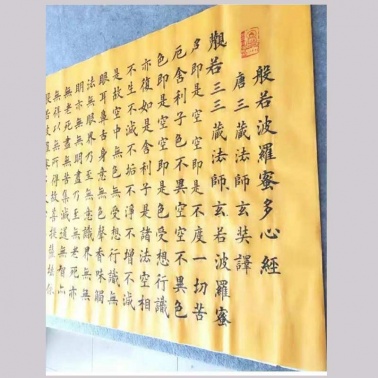 般若波羅蜜多心經
唐三藏法師玄奘譯
觀若三三藏法師玄若波羅蜜
多即是空空即是不度一切苦
厄舍利子色不異空空不異色
色即是空空即是色受想行識
亦復如是舍利子是諸法空相
不生不滅不垢不淨不增不減
是故空中無色無受想行識無
眼耳鼻舌身意無色聲香味觸
法無眼界乃至無意識界無無
明亦無無明盡乃至無老死亦
無老死盡無苦集滅道無智
無得以無所得故菩提薩埵
般若波羅蜜